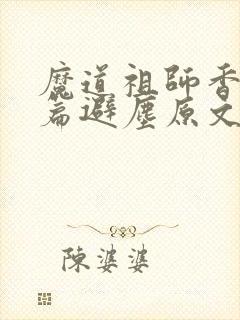 魔道祖師香
篇避塵原文
陳婆婆